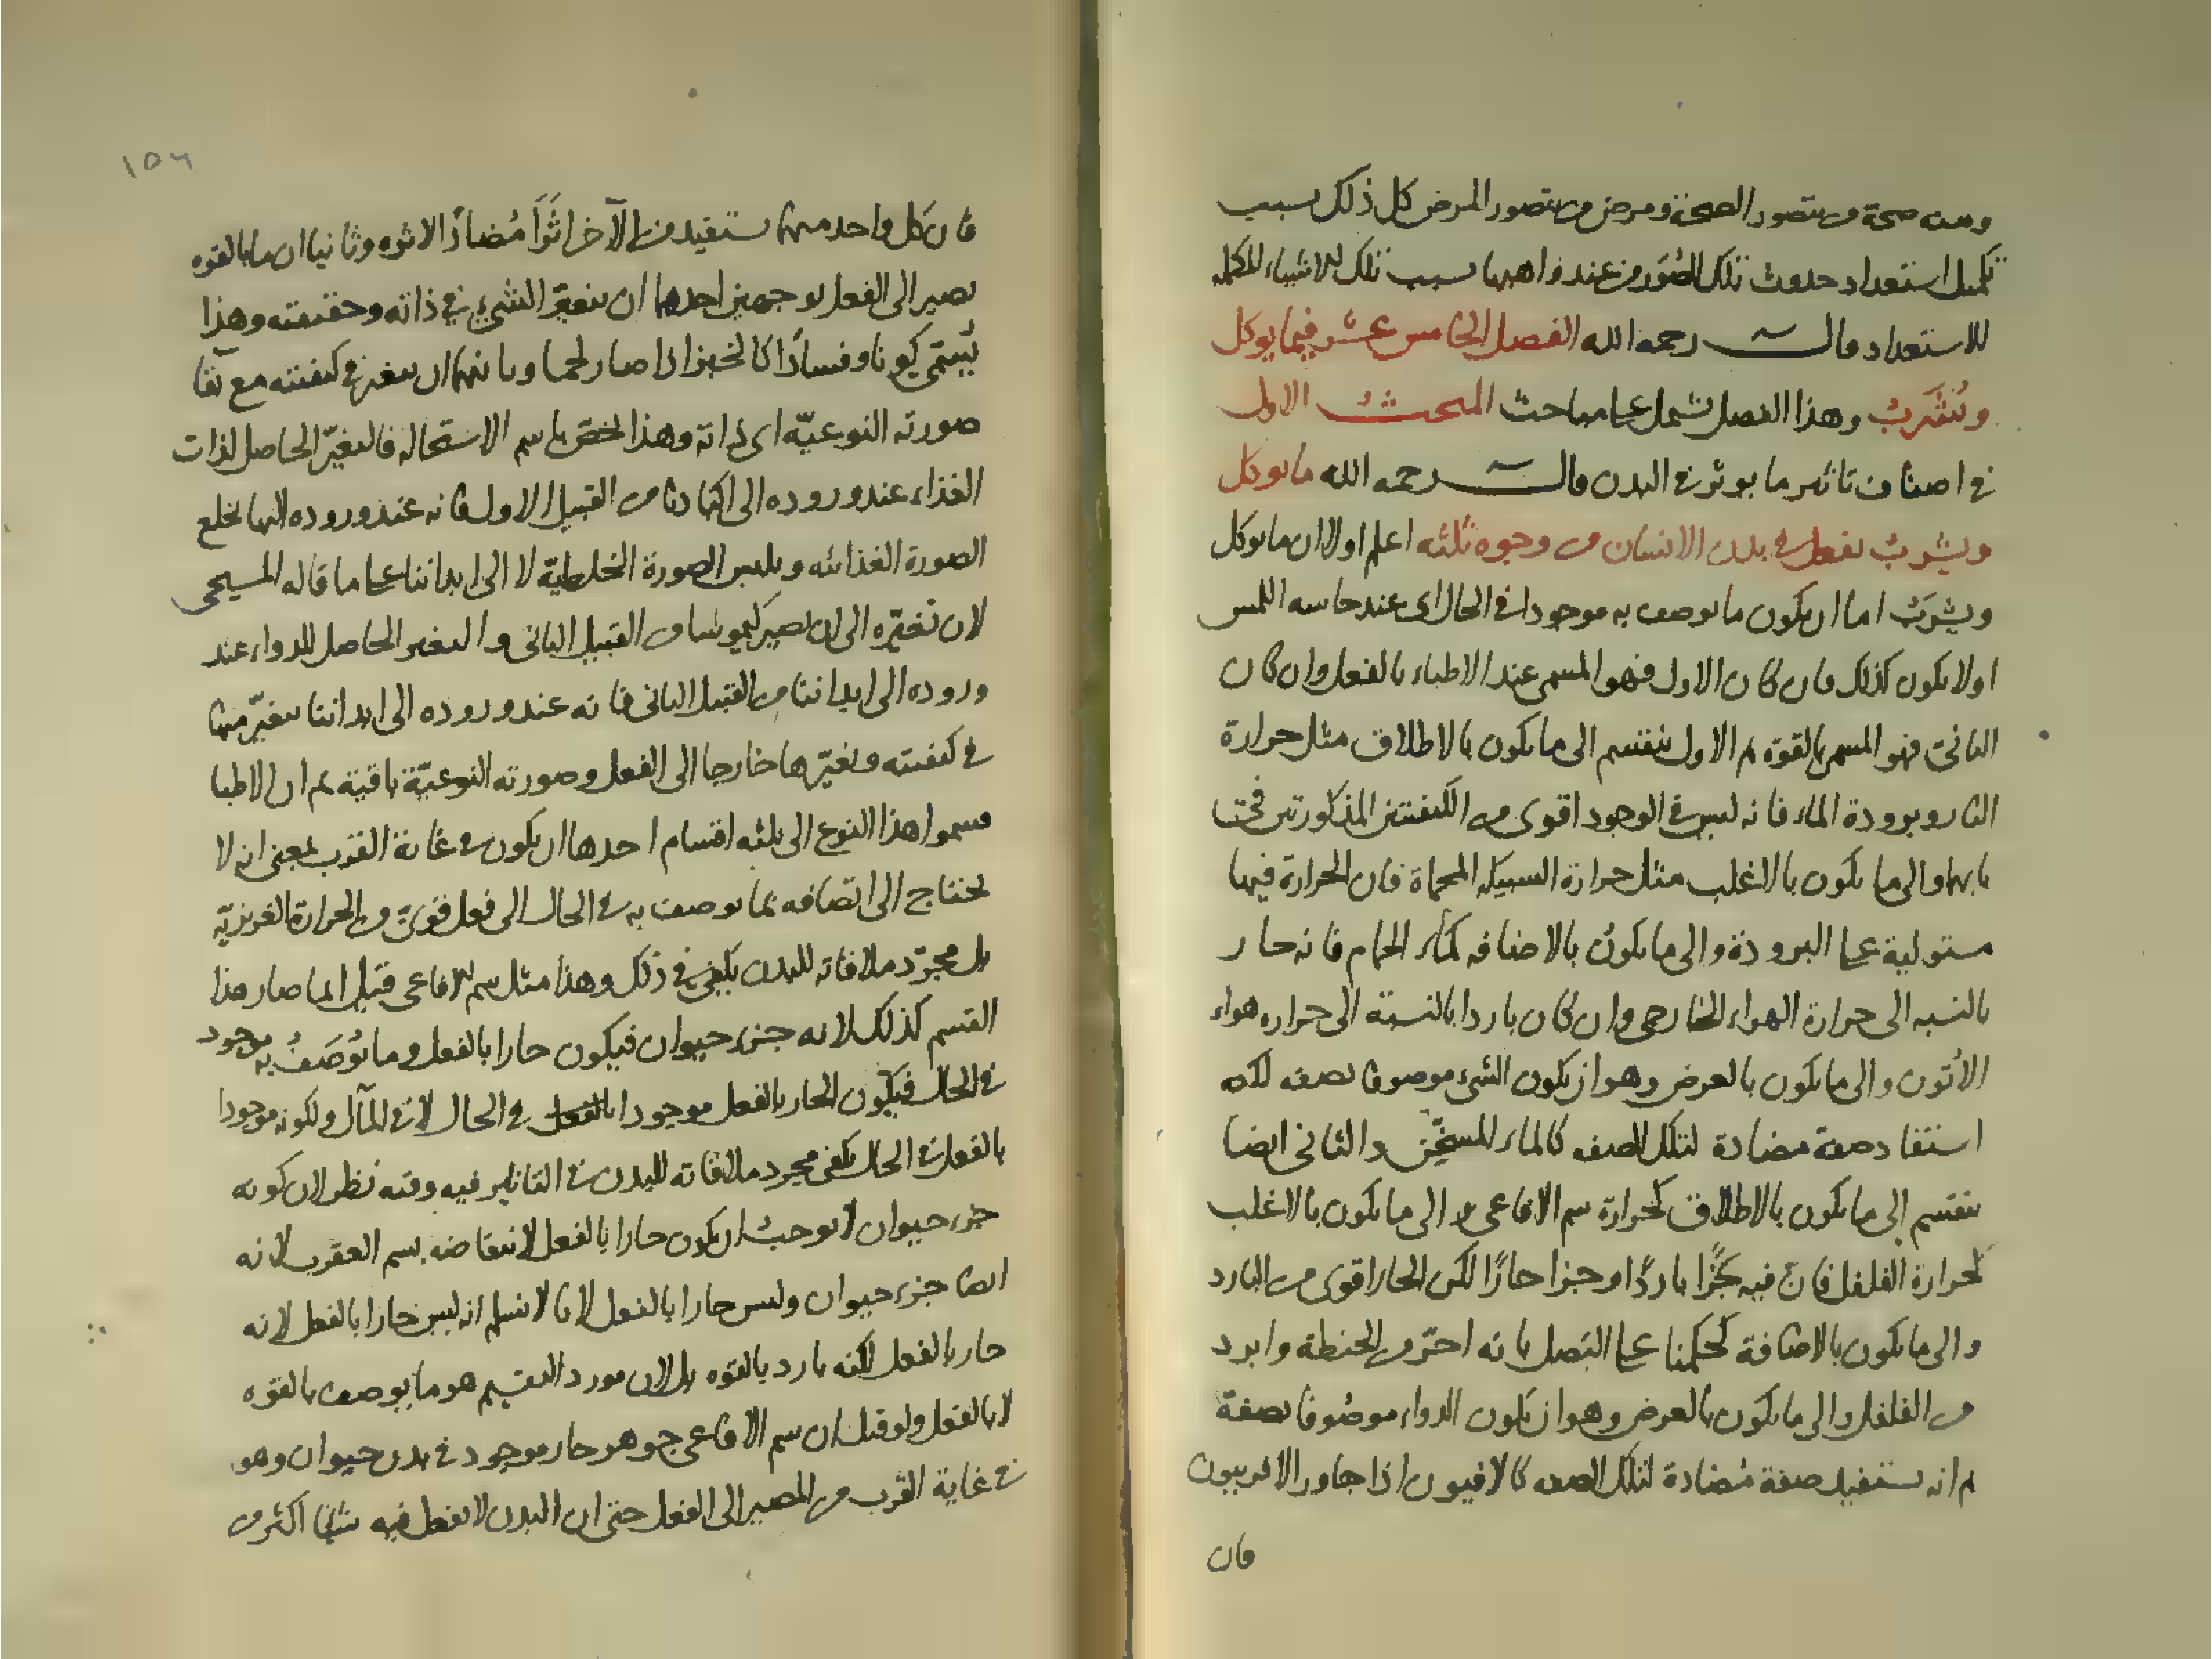 ومنه صحة من تصور الصحة ومرض من تصور المرض كل ذلك بسبب
تكميل استعداد حدوث تلك الصور من عند واهبها بسبب تلك الاشياء المكملة
للاستعداد قال رحمه الله الفصل الخامس عشر فيما يوكل
ويُشرَبُ وهذا الفصل يشتمل على مباحث المبحث الاول
في اصناف تاثير ما يوثر في البدن قال رحمه الله ما يوكل
ويشربُ يفعل في بدن الانسان من وجوه ثلثه اعلم اولا ان ما يوكل
ويشرَبُ اما ان يكون ما يوصف به موجودا في الحال اى عند حاسه اللمس
او لا يكون كذلك فان كان الاول فهو المسمى عند الاطباء بالفعل وان كان
الثانى فهو المسمى بالقوه ثم الاول ينقسم الى ما يكون بالاطلاق مثل حرارة
النار وبرودة الماء فانه ليس في الوجود اقوى من الكيفيتين المذكورتين في
بابهما والى ما يكون بالاغلب مثل حرارة السبيكه المحماة فان الحرارة فيها
مستولية على البرودة والى ما يكون بالاضافه كماء الحمام فانه حار
بالنسبه الى حرارة الهواء الخارجى وان كان باردا بالنسبة الى حراره هواء
الأتون والى ما يكون بالعرض وهو ان يكون الشىء موصوفا بصفه لكنه
استفاد صفة مضادة لتلك الصفه كالماء المسخّن والثانى ايضا
ينقسم الى ما يكون بالاطلاق كحرارة سم الافاعى والى ما يكون بالاغلب
كحرارة الفلفل فان فيه جُزًا باردًا وجزا حارًا لكن الحار اقوى من البارد
والى ما يكون بالاضافة كحكمنا على البصل بانه احرّ من الحنطة وابرد
من الفلفل والى ما يكون بالعرض وهو ان يكون الدواء موصُوفا بصفة
ثم انه يستفيد صفة مُضادة لتلك الصفه كالافيون اذا جاور الافربيون
فان
١٥٦
فان كل واحد منهما يستفيد من الآخر اثَرًا مُضادًا لاثره وثانيا ان ما بالقوه
يصير الى الفعل بوجهين احدهما ان يتغيّر الشىء في ذاته وحقيقته وهذا
يُسمّى كونا وفسادًا كالخبز اذا صار لحما وثانيهما ان يتغير في كيفيته مع بقا
صورته النوعيّه اى ذاته وهذا اختص باسم الاستحاله فالتغيّر الحاصل لذات
الغذاء عند وروده الى اكبادنا من القبيل الاول فانه عند وروده اليها يخلع
الصورة الغذائيه ويلبس الصورة الخلطية لا الى ابداننا على ما قاله المسيحى
لان تغيّره الى ان يصير كيموسا من القبيل الثانى والتغير الحاصل للدواء عند
وروده الى ابداننا من القبيل الثانى فانه عند وروده الى ابداننا يتغيّر منها
في كيفيته وتغيّرها خارجا الى الفعل وصورته النوعيّة باقية ثم ان الاطبا
قسموا هذا النوع الى ثلثه اقسام احدها ان يكون في غاية القرب بمعنى انه لا
يحتاج الى اتصافه بما يوصف به في الحال الى فعل قوىّ من الحرارة الغريزيّه
بل مجرّد ملاقاته للبدن يكفى في ذلك وهذا مثل سم الافاعى قيل انما صار هذا
القسم كذلك لانه جزء حيوان فيكون حارا بالفعل وما يُوصَفُ به موجود
في الحال فيكون الحار بالفعل موجودا بالفعل في الحال لا في المآل ولكونه موجودا
بالفعل في الحال يكفى مجرد ملاقاته للبدن في التاثير فيه وفيه نظر لان كونه
جزء حيوان لا يوجبُ ان يكون حارا بالفعل لانتقاضه بسم العقرب لانه
ايضا جزء حيوان وليس حارا بالفعل لانا لا نسلم انه ليس حارا بالفعل لانه
حار بالفعل لكنه بارد بالقوه بل لان مورد التقسيم هو ما يوصف بالقوه
لا بالفعل ولو قيل ان سم الافاعى جوهر حار موجود في بدن حيوان وهو
في غاية القرب من المصير الى الفعل حتى ان البدن لا يفعل فيه شيئا اكثر من